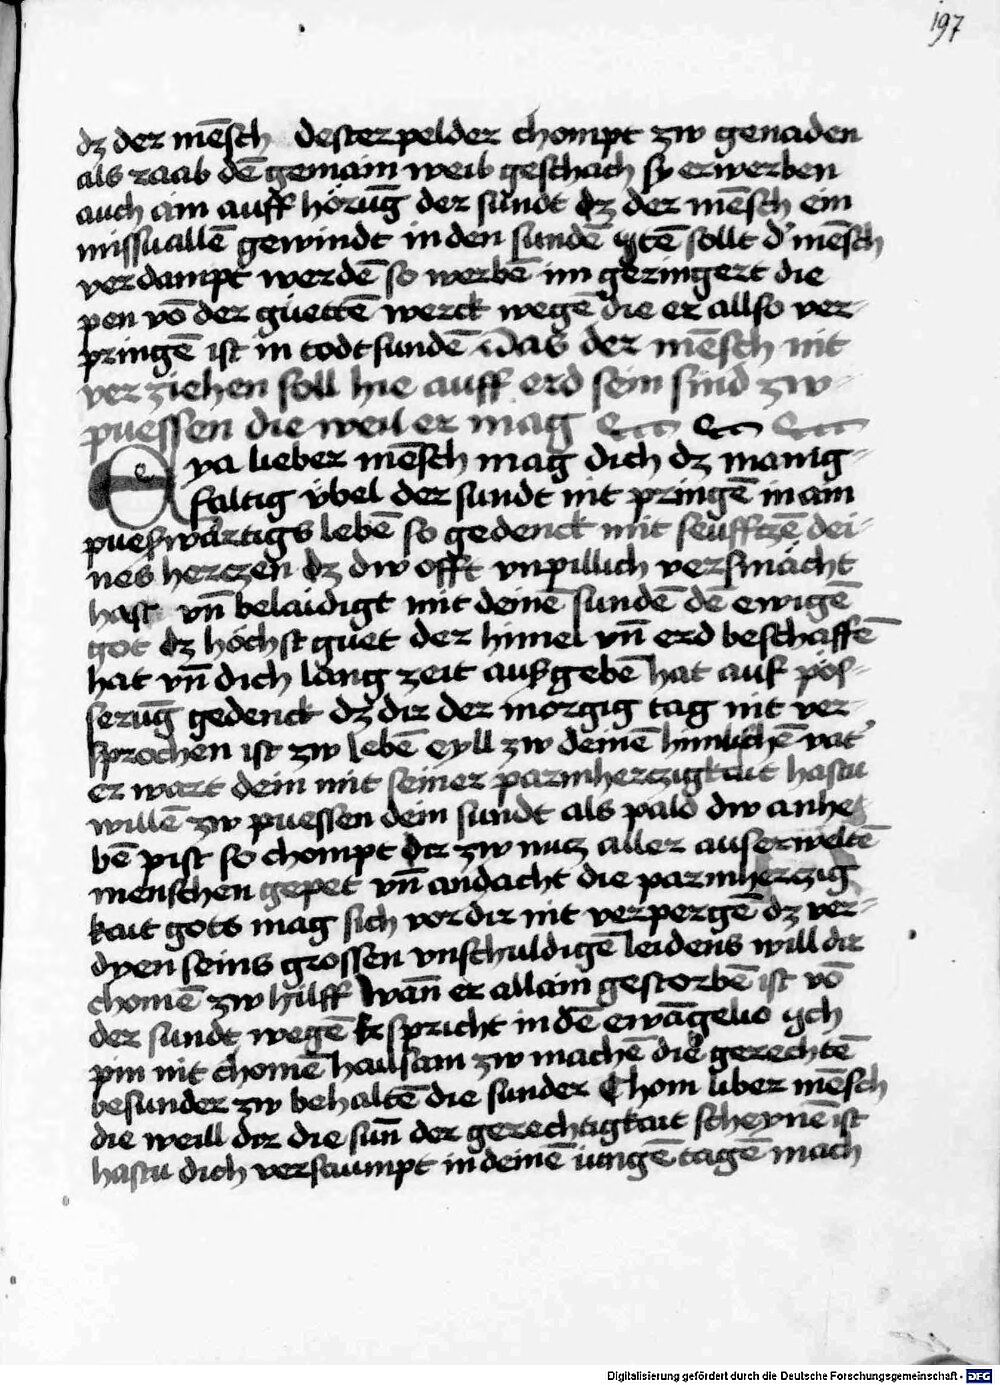 197
dz der mēsch dester pelder chompt zw genaden
als raab dē gemain weib geschach sy erwerben
auch ain auff hörūg der sündt dz der mēsch ein
missuallē gewindt in den sundē ytē sollt d' mēsch
verdampt werdē so werdē im geringert die
pen vō der guettē werck wegē die er allso ver-
pringē ist in todtsundē Das der mēsch nit
verziehen soll hie auff erd sein sind zw-
puessen die weil er mag
Eya lieber mēsch mag dich dz manig-
faltig vbel der sundt nit pringē in ain
pueswärtigs lebē so gedenck mit seufftzē dei-
nes herczen dz dw offt vnpillich versmächt
hast vn̄ belaidigt mit deinē sundē dē ewigē
got dz höchst guet der himel vn̄ erd beschaffē
hat vn̄ dich lang zeit ausgebē hat auf pös-
serūg gedenck dz dir der morgig tag nit ver-
sprochen ist zw lebē eyll zw deinē himlischē vat'
er wart dein mit seiner parmherczigkait hastu
willē zw puessen dein sundt als pald dw anhe
bē pist so chompt dir zw nucz aller auserweltē
menschen gepet vn̄ andacht die parmherczig
kait gots mag sich vor dir nit verpergē dz ver-
dyen seins grossen vnschuldigē leidens will dir
chomē zw hilff wan̄ er allain gestorbē ist vō
der sundt wegē Er spricht in dē ewāgelio ych
pin nit chomē hailsam zw machē die gerechtē
besunder zw behaltē die sunder Chom liber mēsch
die weill dir die sun̄ der gerechtigkait scheynē ist
hastu dich versaumpt in deinē iungē tagē mach
Digitalisierung gefördert durch die Deutsche Forschungsgemeinschaft - DFG